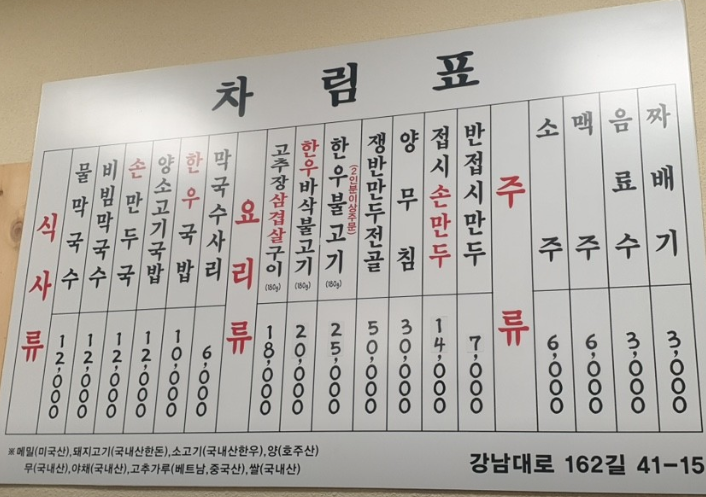 차림표
식사류
물막국수 12,000
비빔막국수 12,000
손만두국 12,000
양소고기국밥 12,000
한우국밥 10,000
막국수사리 6,000
요리류
고추장삼겹살구이(180g) 18,000
한우바삭불고기(180g) 20,000
한우불고기(180g) (2인분이상주문) 25,000
쟁반만두전골 50,000
양무침 30,000
접시손만두 14,000
반접시만두 7,000
주류
소주 6,000
맥주 6,000
음료수 3,000
짜배기 3,000
※메밀(미국산),돼지고기(국내산한돈),소고기(국내산한우),양(호주산)
무(국내산),야채(국내산),고추가루(베트남,중국산),쌀(국내산)
강남대로 162길 41-15